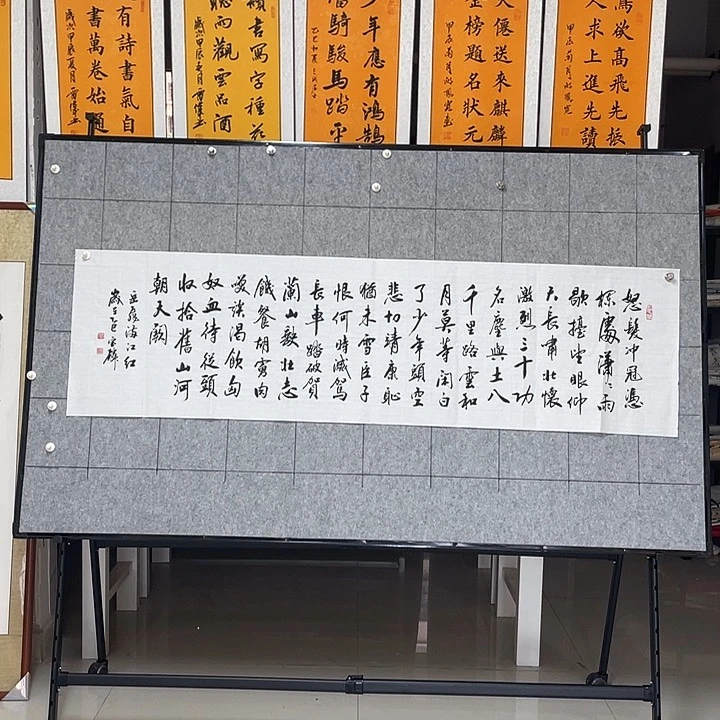 欲高飛先振
人求上進先讀
甲辰菊月
僊送來麒麟
榜題名狀元
甲辰菊月
少年應有鴻鵠
騎駿馬踏平
書寫字種花
雨觀雲品酒
歲次甲辰夏月
有詩書氣自
書萬卷始通
歲次甲辰夏月
怒髮沖冠憑
欄處瀟〻雨
歇擡望眼仰
天長嘯壯懷
激烈三十功
名塵與土八
千里路雲和
月莫等閑白
了少年頭空
悲切靖康恥
猶未雪臣子
恨何時滅駕
長車踏破賀
蘭山缺壯志
饑餐胡虜肉
笑談渴飲匈
奴血待從頭
收拾舊山河
朝天闕
岳飛滿江紅
歲乙巳